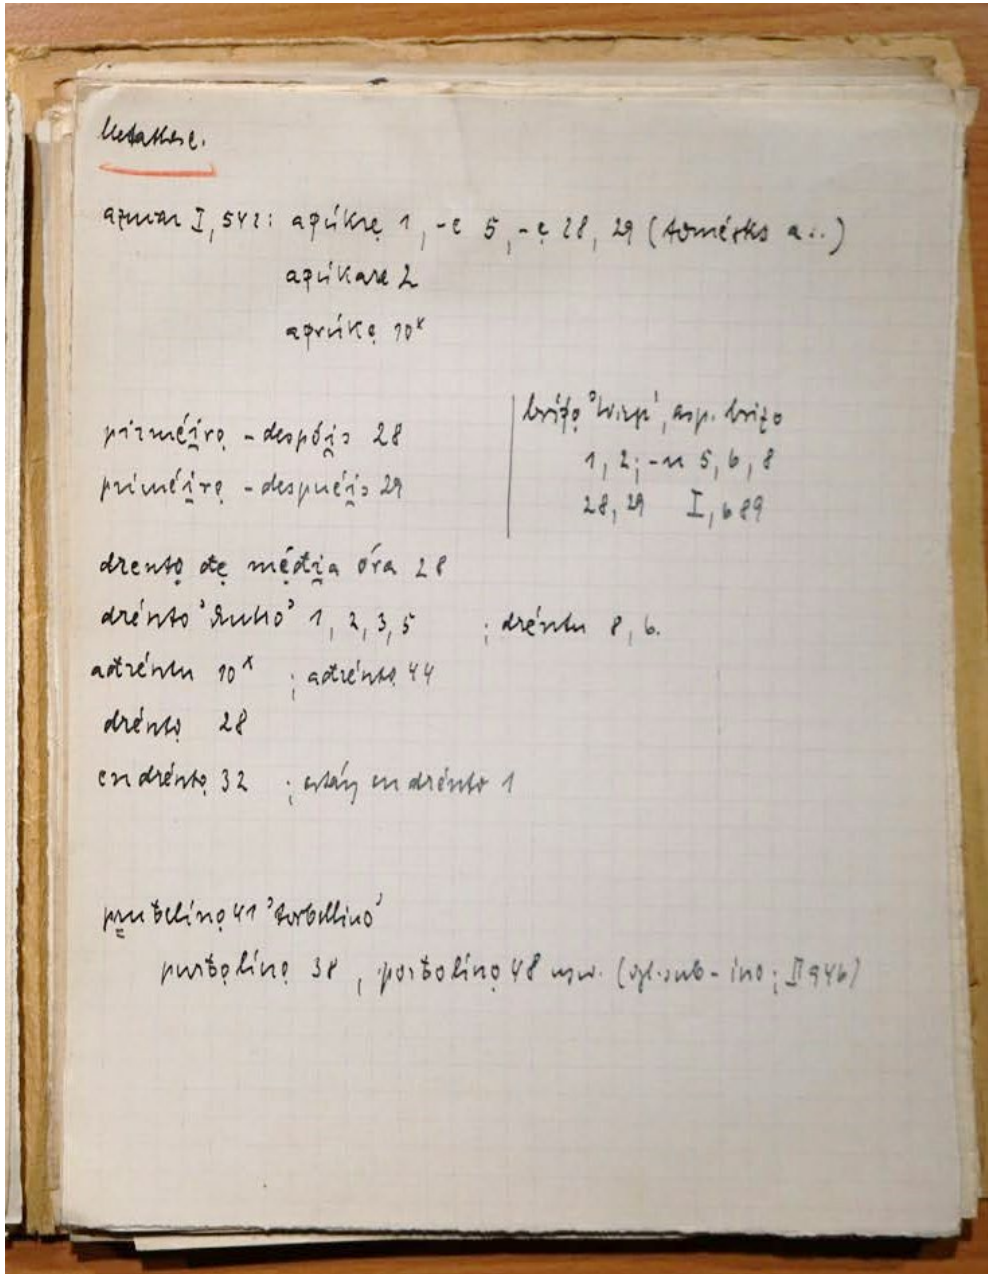 Metathese.
I, 542: apúkrę 1, -e 5, -ę 28, 29 (
apúkara 2
aprúkę 10ˣ
pirméi̯rọ - despói̯s 28
priméi̯rọ - despuéi̯s 29
brížọ, asp. brizo
1, 2; -u 5, 6, 8
28, 29 I, 689
drentọ đę męđi̯a óra 28
drénto 1, 2, 3, 5 ; dréntu 8, 6.
ađréntu 10ˣ ; ađréntọ 44
dréntọ 28
en dréntọ 32 ; están en drénto 1
prụƀelínọ 41 'torbellino'
purƀọlínọ 38, porƀolínọ 48 usw. (vgl. sub -ino; II 946)